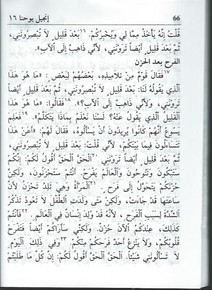 66 إنجيل يوحنا ١٦
قُلْتُ إِنَّهُ يَأْخُذُ مِمَّا لِي وَيُخْبِرُكُمْ. ١٦بَعْدَ قَلِيلٍ لَا تُبْصِرُونَنِي،
ثُمَّ بَعْدَ قَلِيلٍ أَيْضًا تَرَوْنَنِي، لِأَنِّي ذَاهِبٌ إِلَى الْآبِ».
الفرح بعد الحزن
١٧فَقَالَ قَوْمٌ مِنْ تَلَامِيذِهِ، بَعْضُهُمْ لِبَعْضٍ: «مَا هُوَ هَذَا
الَّذِي يَقُولُهُ لَنَا: بَعْدَ قَلِيلٍ لَا تُبْصِرُونَنِي،
ثُمَّ بَعْدَ قَلِيلٍ أَيْضًا تَرَوْنَنِي، وَلِأَنِّي ذَاهِبٌ إِلَى الْآبِ؟». ١٨فَقَالُوا: «مَا هُوَ هَذَا
الْقَلِيلُ الَّذِي يَقُولُ عَنْهُ؟ لَسْنَا نَعْلَمُ بِمَاذَا يَتَكَلَّمُ!». ١٩فَعَلِمَ
يَسُوعُ أَنَّهُمْ كَانُوا يُرِيدُونَ أَنْ يَسْأَلُوهُ، فَقَالَ لَهُمْ: «أَعَنْ هَذَا
تَتَسَاءَلُونَ فِيمَا بَيْنَكُمْ، لِأَنِّي قُلْتُ: بَعْدَ قَلِيلٍ لَا تُبْصِرُونَنِي،
ثُمَّ بَعْدَ قَلِيلٍ أَيْضًا تَرَوْنَنِي. ٢٠الْحَقَّ الْحَقَّ أَقُولُ لَكُمْ: إِنَّكُمْ
سَتَبْكُونَ وَتَنُوحُونَ وَالْعَالَمُ يَفْرَحُ. أَنْتُمْ سَتَحْزَنُونَ، وَلَكِنَّ
حُزْنَكُمْ يَتَحَوَّلُ إِلَى فَرَحٍ. ٢١اَلْمَرْأَةُ وَهِيَ تَلِدُ تَحْزَنُ لِأَنَّ
سَاعَتَهَا قَدْ جَاءَتْ، وَلَكِنْ مَتَى وَلَدَتِ الطِّفْلَ لَا تَعُودُ تَذْكُرُ
الشِّدَّةَ لِسَبَبِ الْفَرَحِ، لِأَنَّهُ قَدْ وُلِدَ إِنْسَانٌ فِي الْعَالَمِ. ٢٢فَأَنْتُمْ
كَذَلِكَ، عِنْدَكُمُ الْآنَ حُزْنٌ. وَلَكِنِّي سَأَرَاكُمْ أَيْضًا فَتَفْرَحُ
قُلُوبُكُمْ، وَلَا يَنْزِعُ أَحَدٌ فَرَحَكُمْ مِنْكُمْ. ٢٣وَفِي ذَلِكَ الْيَوْمِ
لَا تَسْأَلُونَنِي شَيْئًا. اَلْحَقَّ الْحَقَّ أَقُولُ لَكُمْ: إِنَّ كُلَّ مَا طَلَبْتُمْ